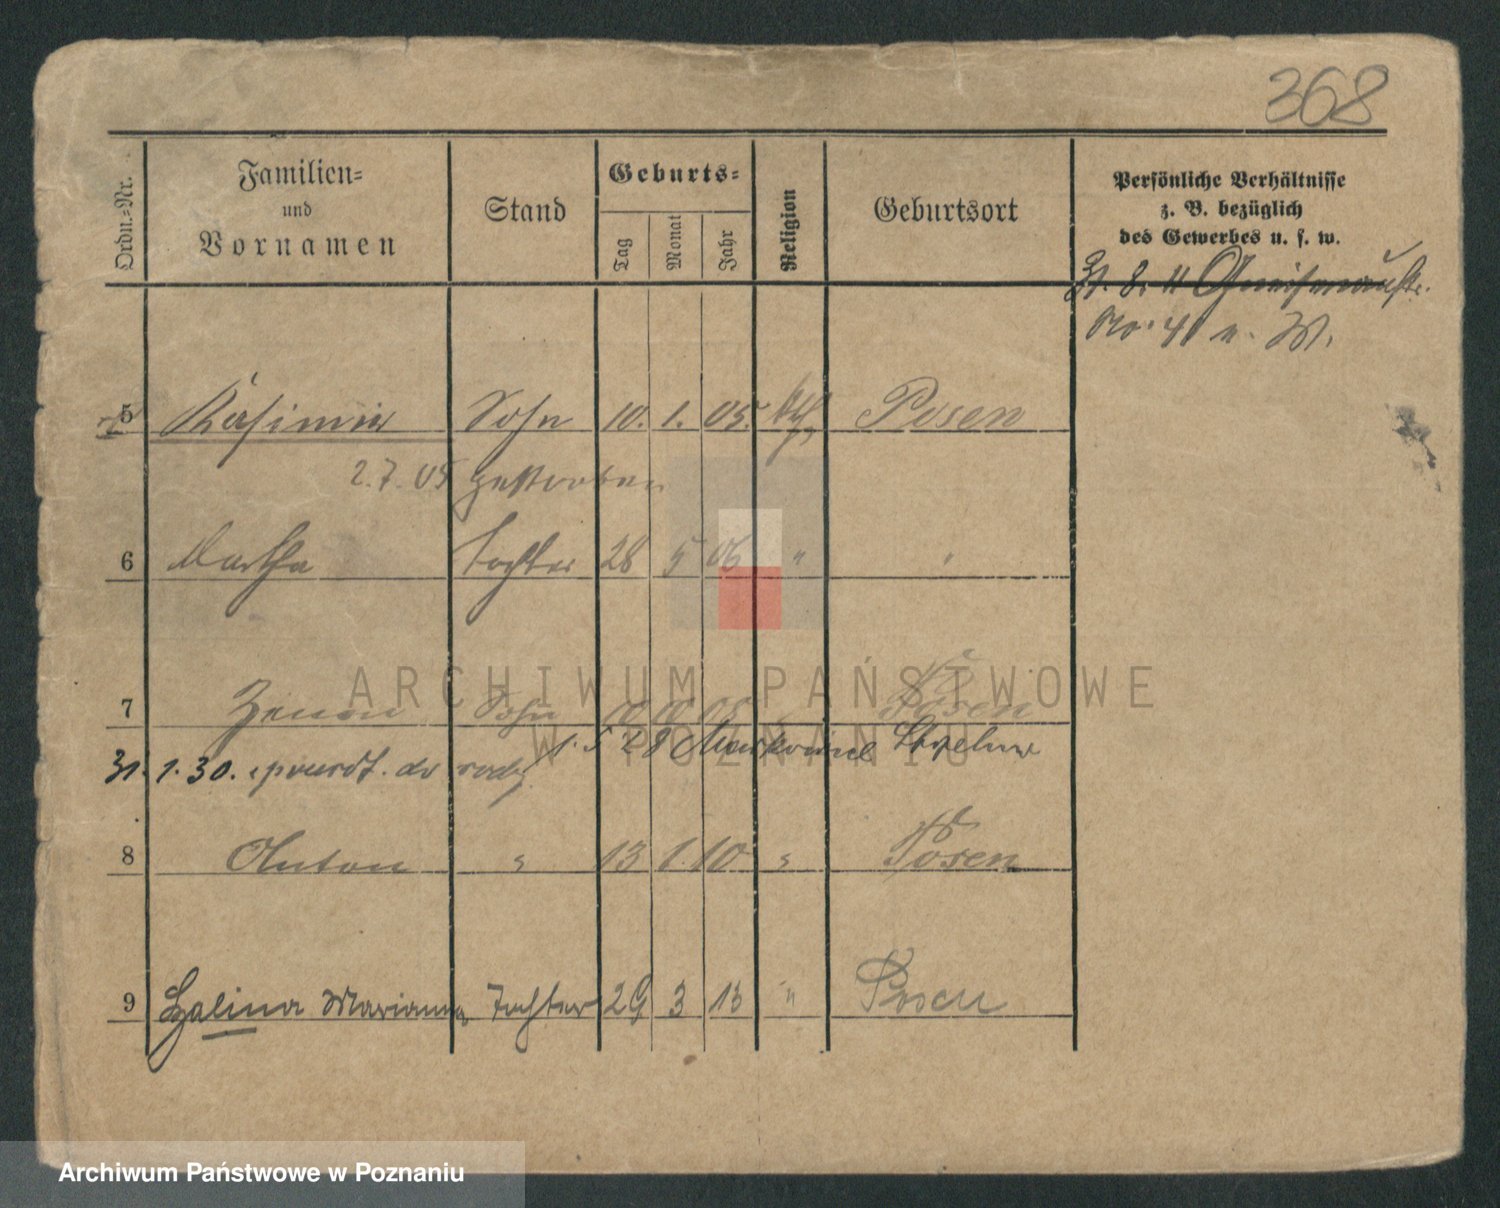 368
Ordn.=Nr.
Familien=
und
Vornamen
Stand
Geburts=
Tag
Monat
Jahr
Religion
Geburtsort
Persönliche Verhältnisse
z. B. bezüglich
des Gewerbes u. s. w.
31. 8. 11 Gneisenaustr.
No. 4
5 Kasimir Sohn 10. 1. 05. Posen
2.7.05 gestorben
6 Martha Tochter 28 5 06 " "
7 Zenon Sohn 10 10 08 Posen
1. 5 28 Markowice Strelno
31. 1. 30. powrót. do rodz
8 Anton " 13 1. 10 " Posen
9 Halina Marianna Tochter 29 3 13 " Posen
ARCHIWUM PAŃSTWOWE
W POZNANIU
Archiwum Państwowe w Poznaniu